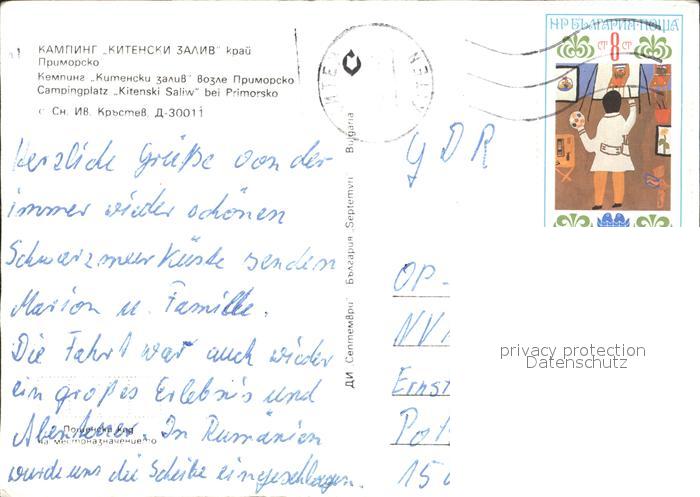 КАМПИНГ „КИТЕНСКИ ЗАЛИВ" край
Приморско
Кемпинг „Китенски залив" возле Приморско
Campingplatz „Kitenski Saliw" bei Primorsko
с Сн. Ив. Кръстев, Д-30011
Herzliche Grüße von der
immer wieder schönen
Schwarzmeerküste senden
Marion u. Familie.
Die Fahrt war auch wieder
ein großes Erlebnis und
Abenteuer. In Rumänien
wurde uns die Scheibe eingeschlagen.
на местоназначението
ДИ „Септември" България „Septemvri" Bulgaria
НР БЪЛГАРИЯ·ПОЩА
СТ 8 СТ
КИТЕН
GDR
OP-
NV
Ernst
Pot
15
privacy protection
Datenschutz